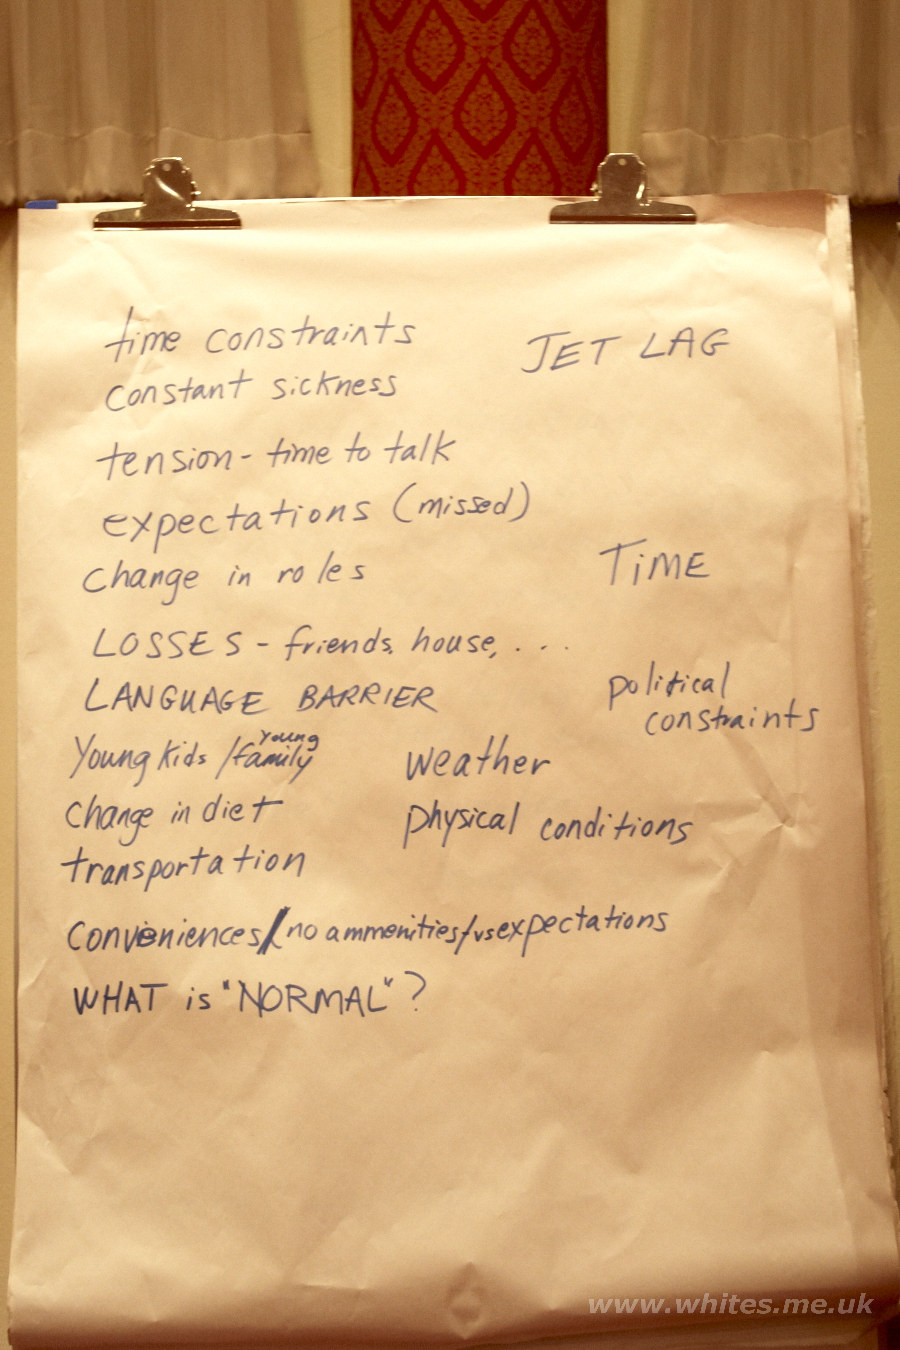 time constraints
JET LAG
constant sickness
tension - time to talk
expectations (missed)
change in roles
TiME
LOSSES - friends, house, ...
LANGUAGE BARRIER
political
constraints
Young kids / young family
weather
change in diet
physical conditions
transportation
conveniences/no ammenities/vs expectations
WHAT is "NORMAL"?
www.whites.me.uk